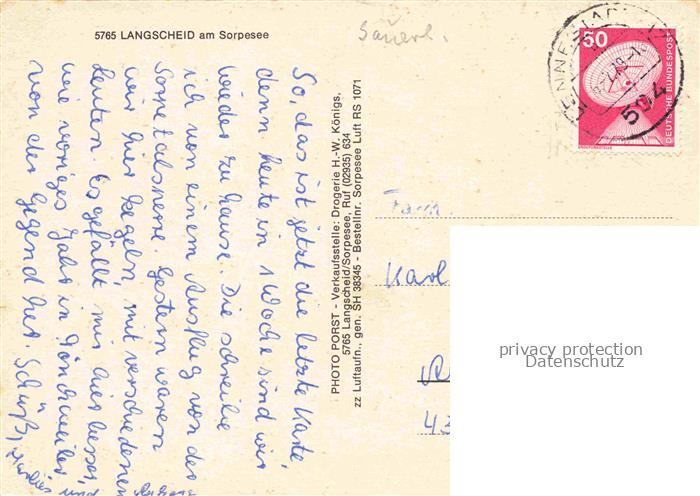 5765 LANGSCHEID am Sorpesee
Sauerl.
So, das ist jetzt die letzte Karte,
denn heute in 1 Woche sind wir
wieder zu hause. Die schreibe
ich von einem Ausflug von der
Sorpetalsperre. Gestern waren
wir hier segeln, mit verschiedenen
Leuten. Es gefällt mir hier besser,
wie voriges Jahr in Hönchweiler,
von der Gegend her. Schüß,
und
PHOTO PORST - Verkaufsstelle: Drogerie H.-W. Königs,
5765 Langscheid/Sorpesee, Ruf (02935) 634
zz Luftaufn., gen. SH 38345 - Bestellnr. Sorpesee Luft RS 1071
50
DEUTSCHE BUNDESPOST
ERDFUNKSTELLE
LENNESTADT
594
Fam.
Karl
43
privacy protection
Datenschutz